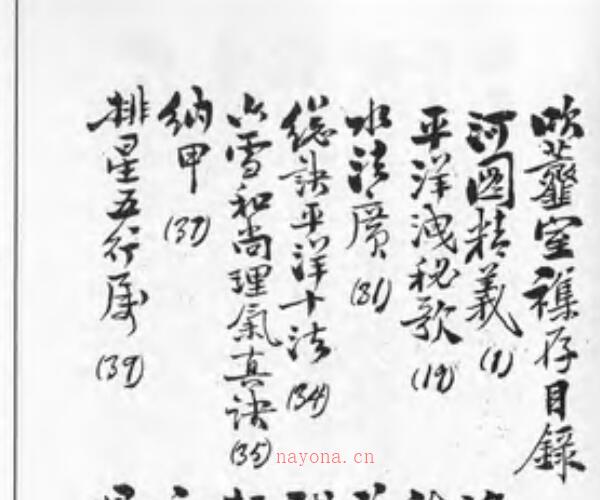 吹虀室襍存目錄
河圖精義 (1)
平洋洩秘歌 (19)
水法廣 (31)
總訣平洋十法 (34)
冷雪和尚理氣真訣 (35)
納甲 (37)
排星五行屬 (39)
nayona.cn